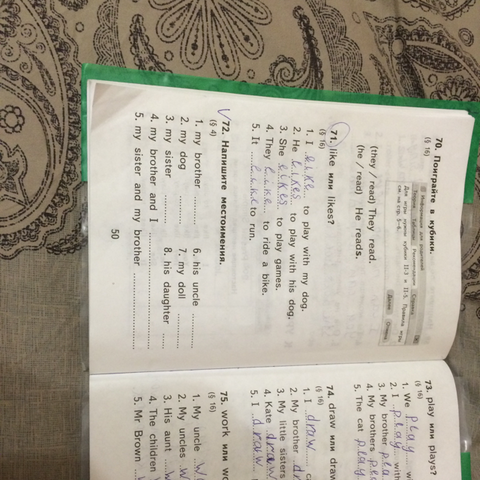 70. Поиграйте в кубики.
(§ 16)
(they / read) They read.
(he / read) He reads.
71. like или likes?
(§ 16)
1. I like to play with my dog.
2. He likes to play with his dog.
3. She likes to play games.
4. They like to ride a bike.
5. It like to run.
72. Напишите местоимения.
(§ 4)
1. my brother
2. my dog
3. my sister
4. my brother and I
5. my sister and my brother
6. his uncle
7. my doll
8. his daughter
50
73. play или plays?
(§ 16)
1. We play
2. I play with
3. My brother
4. My brothers
5. The cat play
74. draw или draw
(§ 16)
1. I draw
2. My brother
3. My little sisters
4. Kate draw
5. I draw
75. work или wo
(§ 16)
1. My uncle
2. My uncles
3. His aunt
4. The children
5. Mr Brown